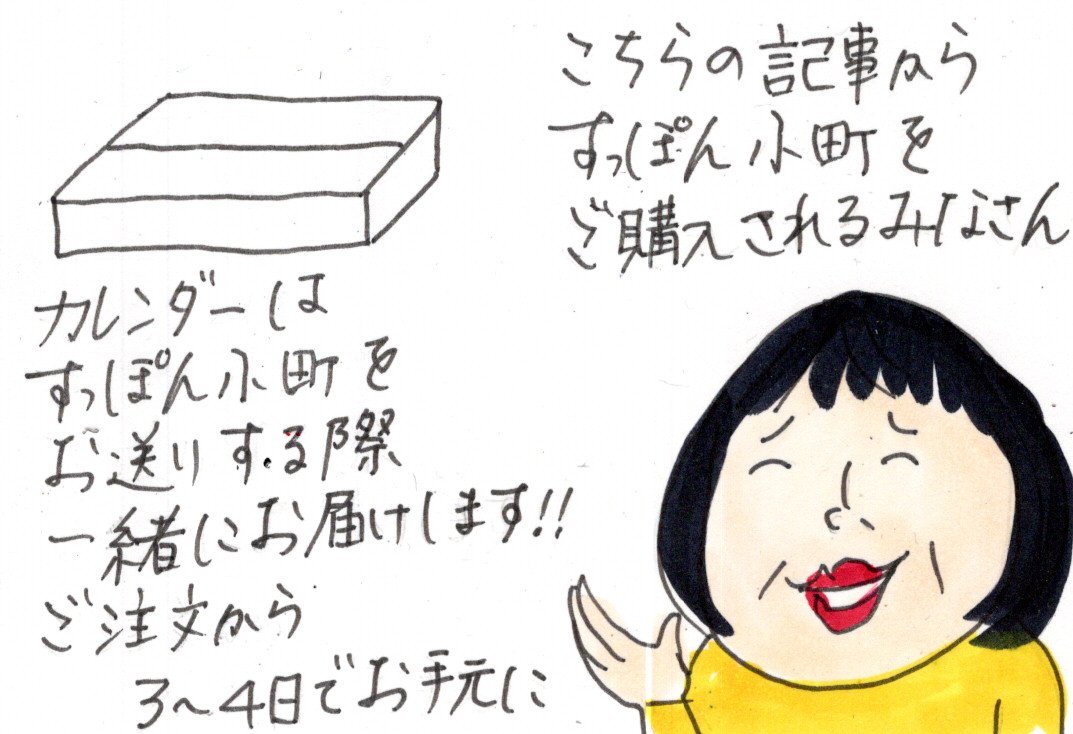 こちらの記事から
すっぽん小町を
ご購入されるみなさん
カレンダーは
すっぽん小町を
お送りする際
一緒にお届けします!!
ご注文から
3〜4日でお手元に